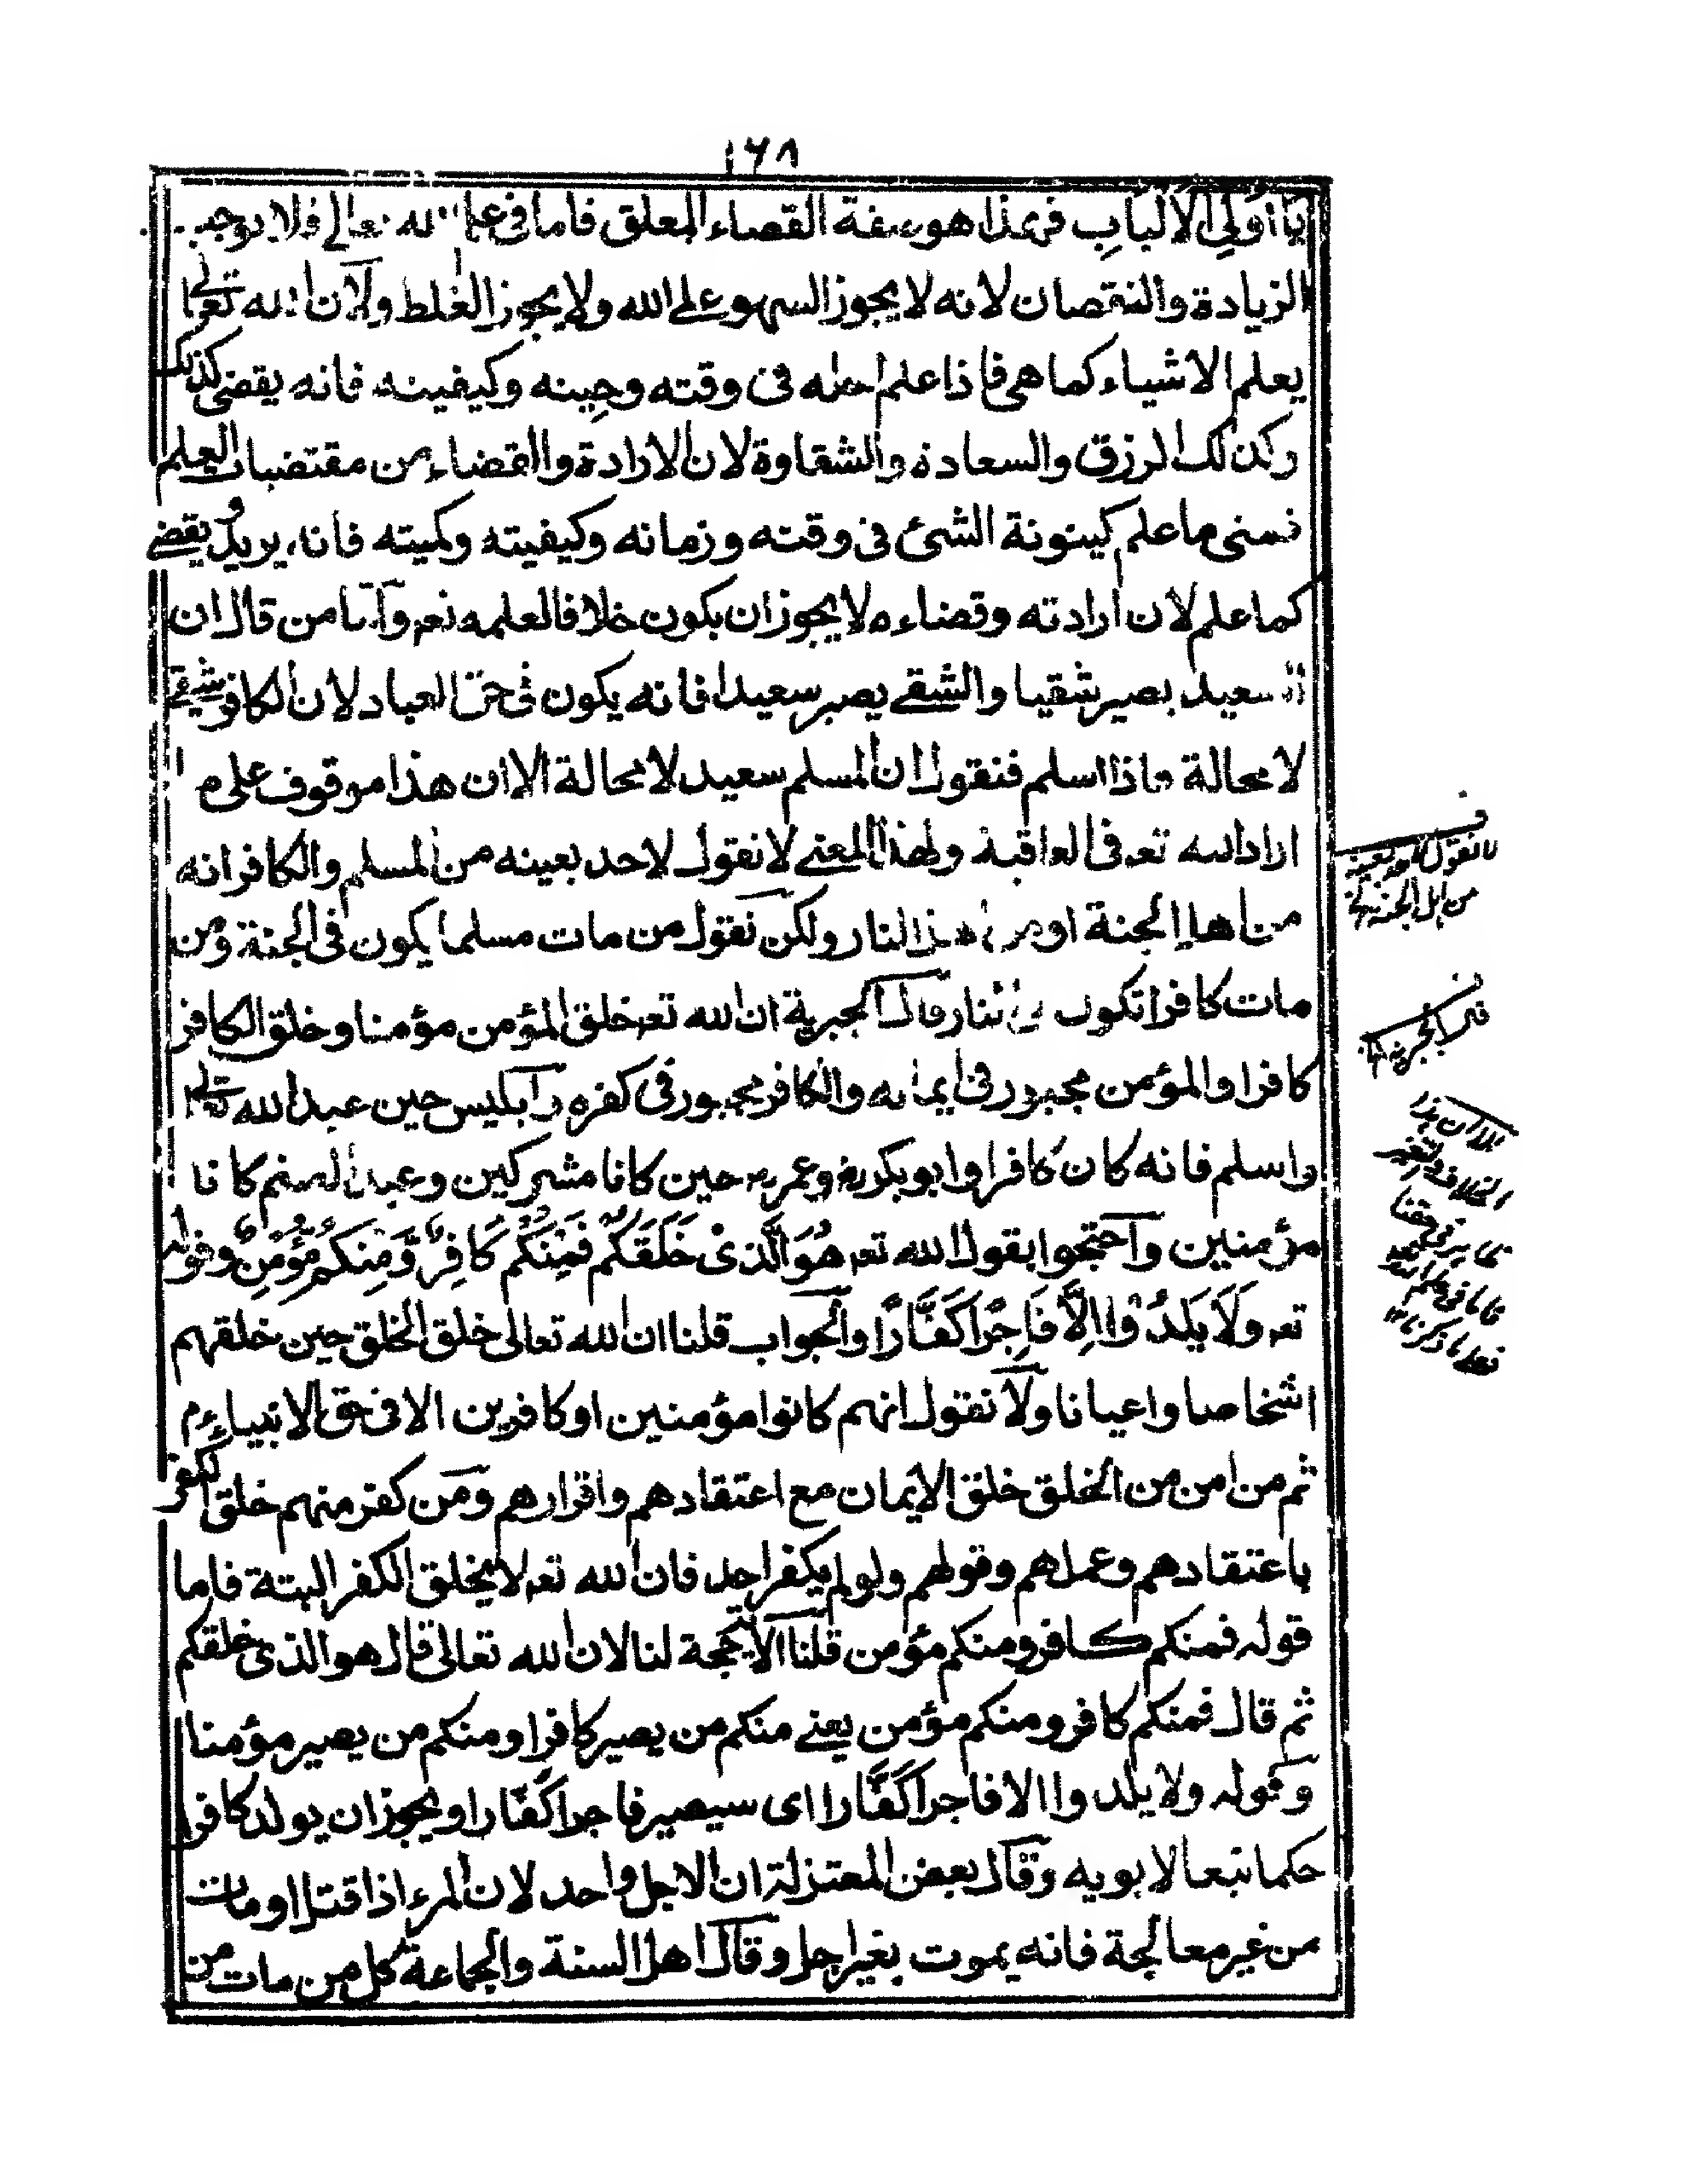 ١٦٨
يَا أُولِي الْأَلْبَابِ فهذا هو صفة القضاء المعلق فاما فى علم الله تعالى فلا يوجب
الزيادة والنقصان لانه لا يجوز السهو على الله ولا يجوز الغلط ولان الله تعالى
يعلم الاشياء كما هى فاذا علم اجله فى وقته وحينه وكيفيته فانه يقضى كذلك
وكذلك الرزق والسعادة والشقاوة لان الارادة والقضاء من مقتضيات العلم
فمتى ما علم كينونة الشئ فى وقته وزمانه وكيفيته وكميته فانه يريد ويقضى
كما علم لان ارادته وقضاءه لا يجوز ان يكون خلافا لعلمه تعه واما من قال ان
السعيد يصير شقيا والشقى يصير سعيدا فانه يكون فى حق العباد لان الكافر شقى
لا محالة فاذا اسلم فنقول ان المسلم سعيد لا محالة الا ان هذا موقوف على ما
اراد الله تعه فى العاقبة ولهذا المعنى لا نقول لاحد بعينه من المسلم والكافر انه
من اهل الجنة او من اهل النار ولكن نقول من مات مسلما يكون فى الجنة ومن
مات كافرا تكون فى النار قال الجبرية ان الله تعه خلق المؤمن مؤمنا وخلق الكافر
كافرا والمؤمن مجبور فى ايمانه والكافر مجبور فى كفره وابليس حين عبد الله تعالى
واسلم فانه كان كافرا وابو بكر رض وعمر رض حين كانا مشركين وعبدا الصنم كانا
مؤمنين واحتجوا بقول الله تعه هُوَ الَّذِىْ خَلَقَكُمْ فَمِنْكُمْ كَافِرٌ وَّمِنْكُمْ مُؤْمِنٌ وقوله
تعه وَلَا يَلِدُوْا إِلَّا فَاجِرًا كَفَّارًا والجواب قلنا ان الله تعالى خلق الخلق حين خلقهم
اشخاصا واعيانا ولا نقول انهم كانوا مؤمنين او كافرين الا فى حق الانبياء ع م
ثم من امن من الخلق خلق الايمان مع اعتقادهم واقرارهم ومن كفر منهم خلق الكفر
باعتقادهم وعملهم وقولهم ولو لم يكفر احد فان الله تعه لا يخلق الكفر البتة فاما
قوله فمنكم كافر ومنكم مؤمن قلنا الآية حجة لنا لان الله تعالى قال هو الذى خلقكم
ثم قال فمنكم كافر ومنكم مؤمن يعنى منكم من يصير كافرا ومنكم من يصير مؤمنا
وقوله ولا يلدوا الا فاجرا كَفَّارا اى سيصير فاجرا كَفّارا ويجوز ان يولد كافرا
حكما تبعا لابويه وقال بعض المعتزلة ان الاجل واحد لان المرء اذا قتل او مات
من غير معالجة فانه يموت بغير اجل وقال اهل السنة والجماعة كل من مات من
لا نقول لاحد بعينه
من اهل الجنة